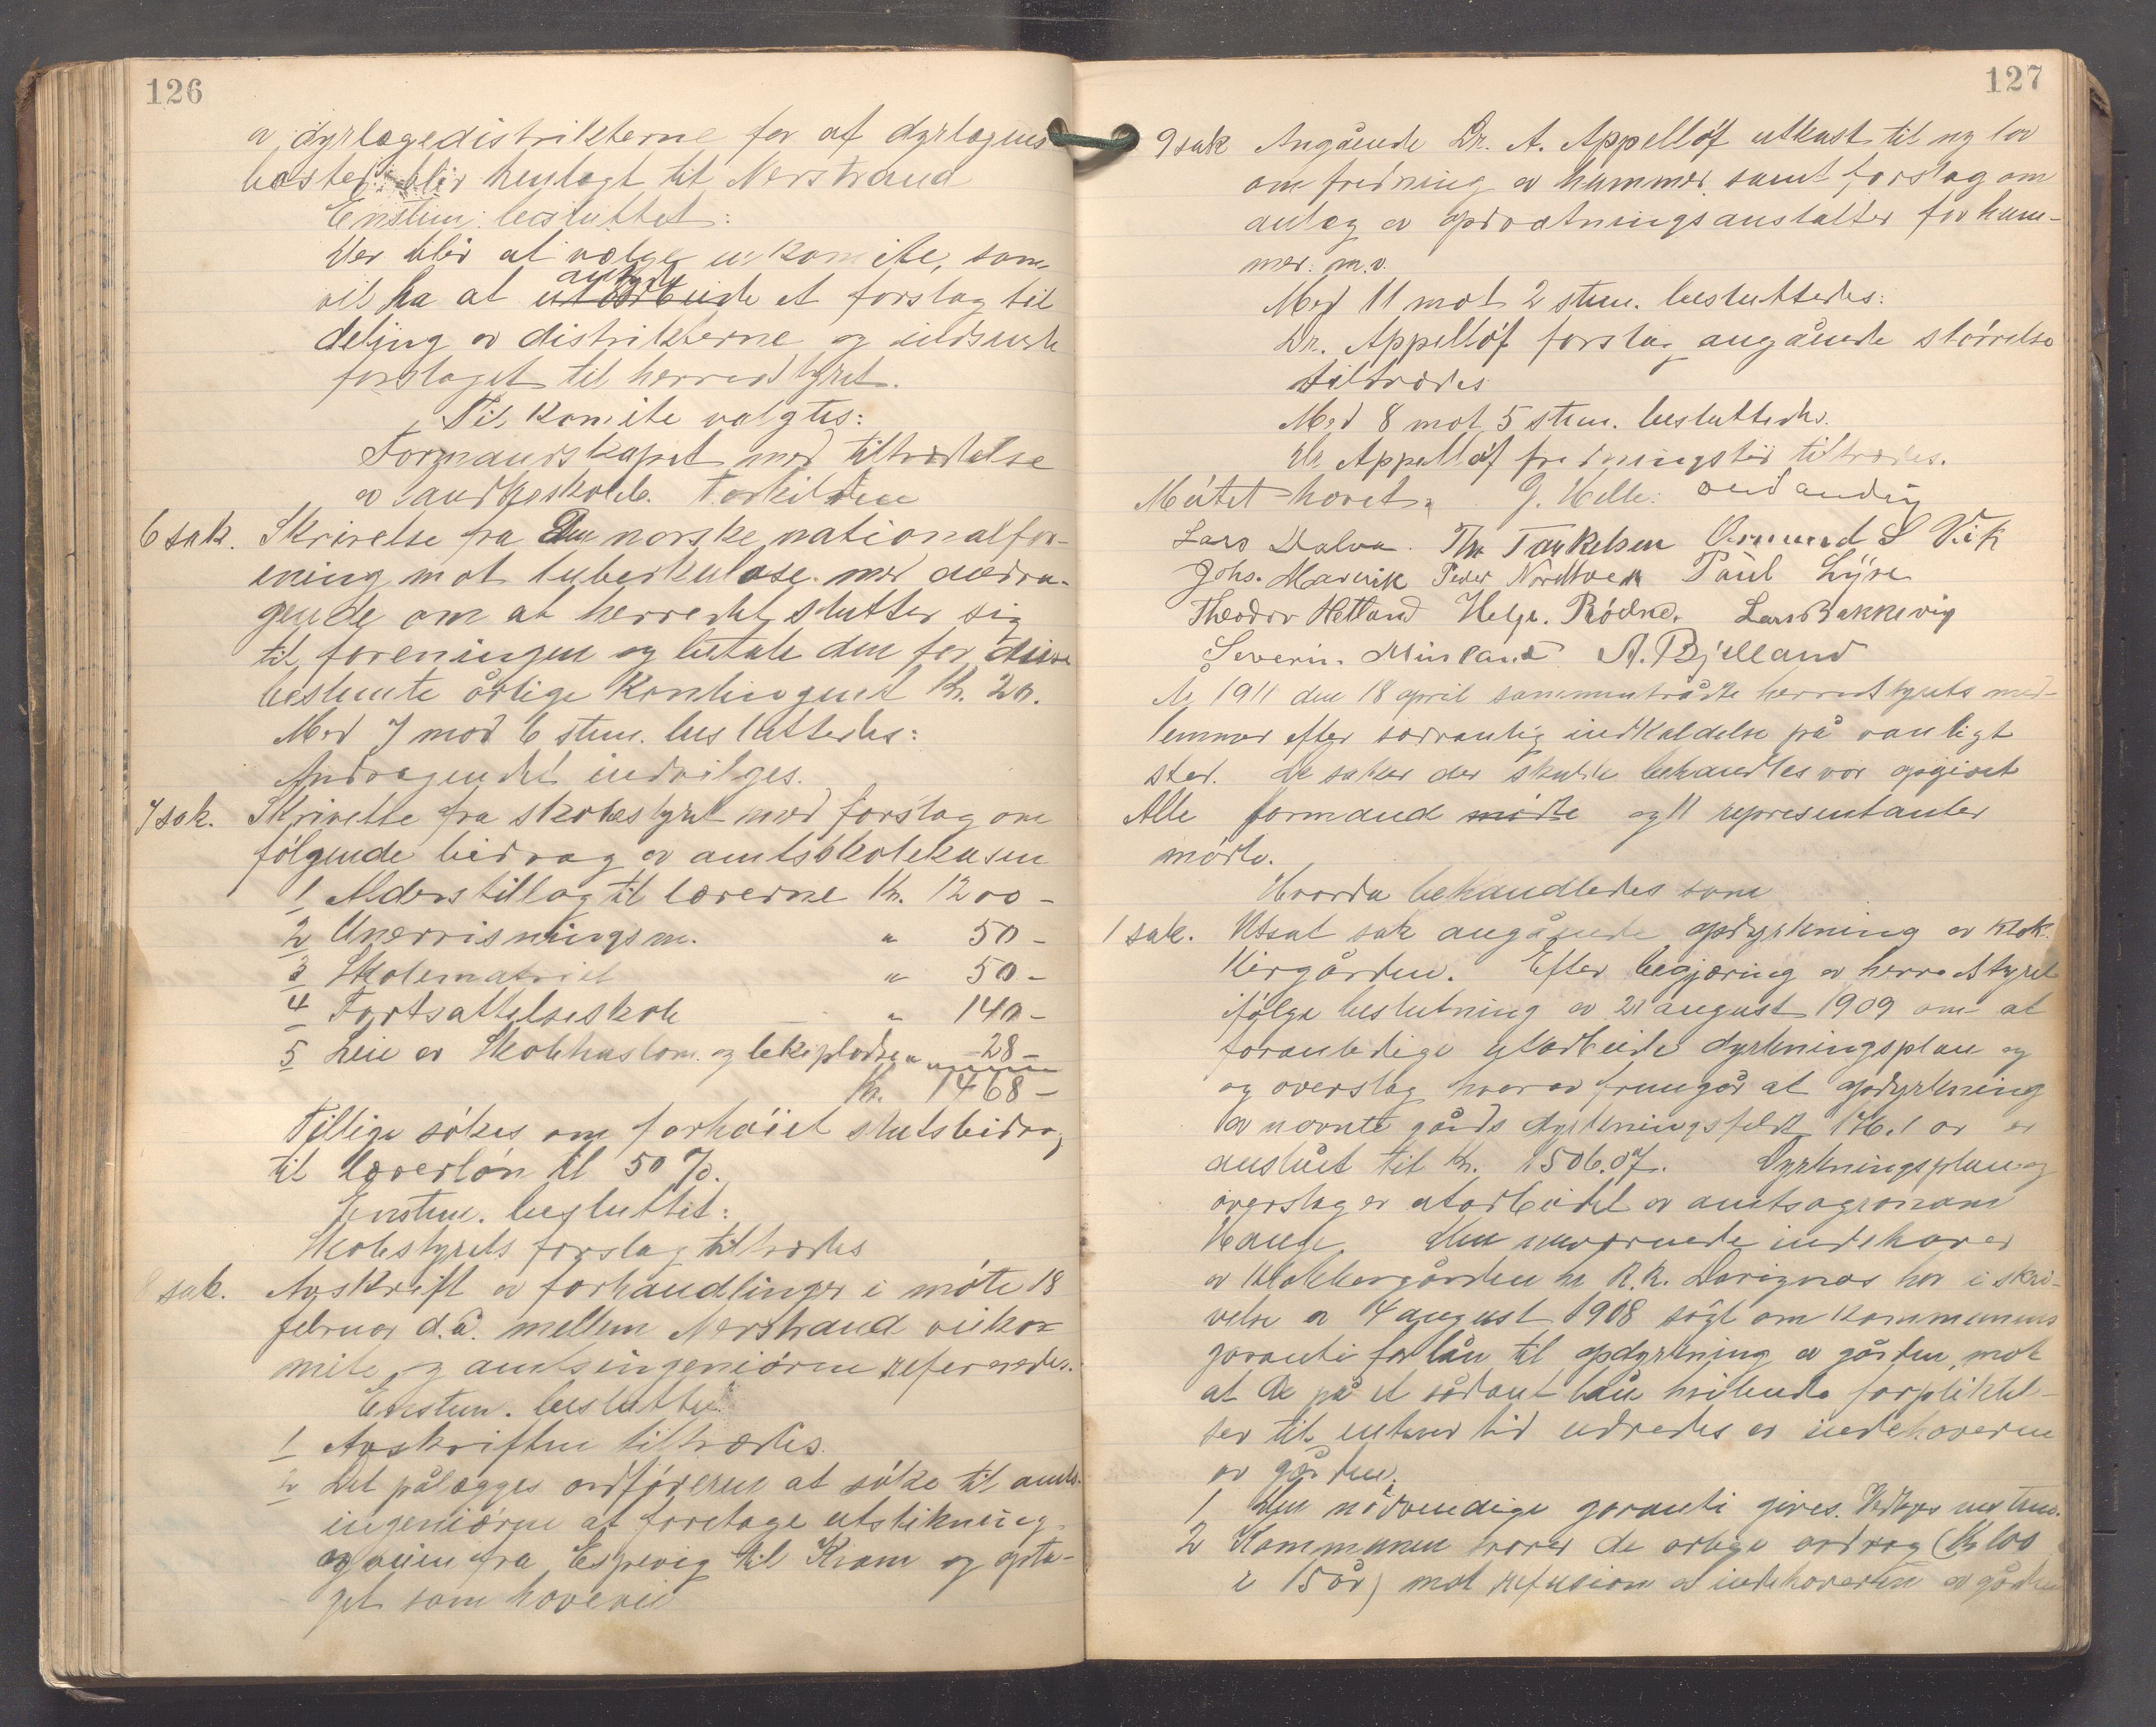 126
av dyrlægedistrikterne for at dyrlægens
bosted blir henlagt til Nerstrand
Enstem. besluttet:
Der blir at vælge en komite, som
vil ha at utarbeide et forslag til
deling av distrikterne og indsende
forslaget til herredstyret.
Til komite valgtes:
Formandskapet med tiltrædelse
av landhskolb. Torkildsen
6 sak. Skrivelse fra Den norske nationalfor-
ening mot tuberkulose med andra-
gende om at herredet slutter sig
til foreningen og betale den for disse
bestemte årlige kontingent kr. 20.
Med 7 mod 6 stem. besluttedes:
Andragendet indvilges.
7 sak. Skrivelse fra skolestyret med forslag om
følgende bidrag av amtsskolekasen
1 Alderstillæg til lærerne Kr. 1200 -
2 Unervisningsm. " 50 -
3 Skolematriel " 50 -
4 Fortsættelseskole " 140 -
5 Leie av Skolehuslom. og lekeplodse " 28 -
Kr. 1468 -
Tillige søkes om forhøiet statsbidrag
til lærerløn til 50 %.
Enstem. besluttet:
Skolestyrets forslag tiltrædes
8 sak. Avskrift av forhandlinger i møte 18
februar d.å. mellem Nerstrand veikom
mite og amtsingeniøren refereredes.
Enstem. besluttet
1 Avskriften tiltrædes.
2 Det pålægges ordføreren at søke til amts-
ingeniøren at foretage utstikning
av veien fra Espevig til Kram og opta-
get som hovevei
127
9 sak Angående Dr. A. Appelløf utkast til ny lov
om fredning av hummer samt forslag om
anlæg av opdrætningsanstalter for hum-
mer m.v.
Med 11 mot 2 stem. besluttedes:
Dr. Appelløf forslag angående størrelse
tiltrædes
Med 8 mot 5 stem. besluttedes.
Dr Appelløf fredningstid tiltrædes.
Møtet hævet. G. Helle:
Lars Dalva. Th Torkelsen Osmund S Vik
Johs. Marvik Peder Nordtveit Paul Lÿse
Theodor Hetland Helge Bødne. Lars Bakkevig
Severin Mineland A. Bjelland
År 1911 den 18 april sammentrådte herredstyrets med-
lemmer efter sedvanlig indkaldelse på vanligt
sted. De saker der skulde behandles var opgivet
Alle formænd mødte og 11 representanter
mødte.
Hvorda behandledes som
1 sak. Utsat sak angående opdyrkning av Klok-
kergården. Efter begjæring av herredstyret
ifølge beslutning av 21 august 1909 om at
foranledige utarbeide dyrkningsplan og
og overslag hvorav fremgår at opdyrkning
av nævnte gårds dyrkningsfelt 176.1 ar er
anslået til Kr. 1506.07. Dyrkningsplan og
overslag er utarbeidet av amtsagronom
Hauge. Den nuværende indehaver
av Klokkergården hr R. R. Davignas har i skri-
velse av 4 august 1908 søgt om kommunens
garanti for lån til opdyrkning av gården mot
at de på et sådant lån hvilende forpliktel-
ser til enhver tid udredes av indehaveren
av gården.
1 Den nødvendige garanti gives. Vedtages enstem.
2 Kommunen bærer de årlige avdrag (Kr 100
i 15 år) mot refusion av indehaveren av gården